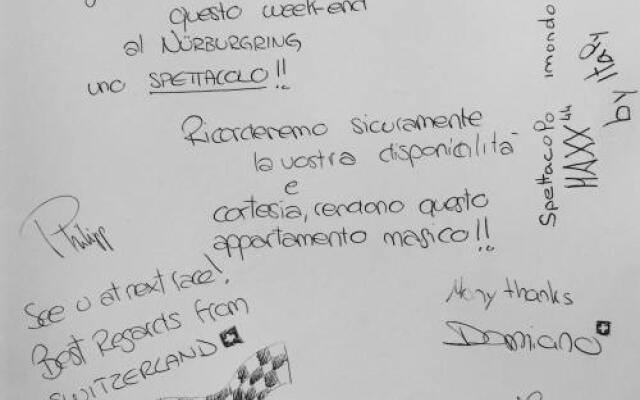 questo week-end
al NÜRBURGRING
uno SPETTACOLO!!
Ricorderemo sicuramente
la vostra disponibilità
e
cortesia, rendono questo
appartamento magico!!
Spettacolo imondo
MAXX 44
by Italy
Philipp
See u at next race!
Best Regards from
SWITZERLAND
Many thanks
Damiano